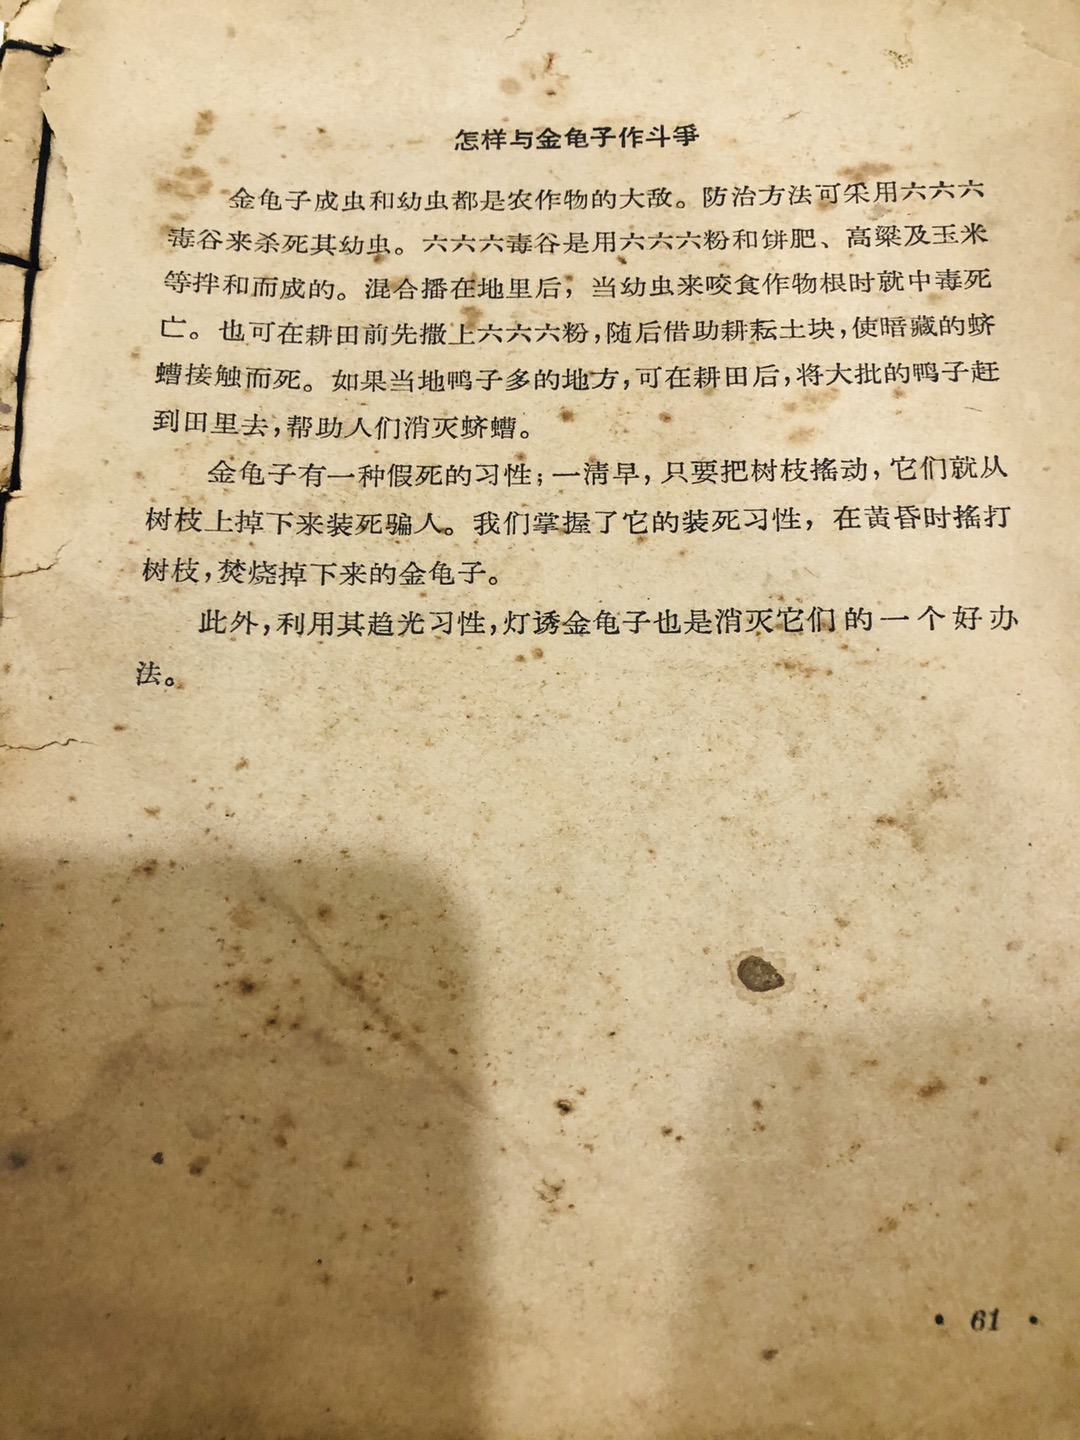 怎样与金龟子作斗爭
金龟子成虫和幼虫都是农作物的大敌。防治方法可采用六六六
毒谷来杀死其幼虫。六六六毒谷是用六六六粉和饼肥、高粱及玉米
等拌和而成的。混合播在地里后，当幼虫来咬食作物根时就中毒死
亡。也可在耕田前先撒上六六六粉，随后借助耕耘土块，使暗藏的蛴
螬接触而死。如果当地鸭子多的地方，可在耕田后，将大批的鸭子赶
到田里去，帮助人们消灭蛴螬。
金龟子有一种假死的习性；一清早，只要把树枝搖动，它们就从
树枝上掉下来装死骗人。我们掌握了它的装死习性，在黄昏时搖打
树枝，焚烧掉下来的金龟子。
此外，利用其趋光习性，灯诱金龟子也是消灭它们的一个好办
法。
• 61 •